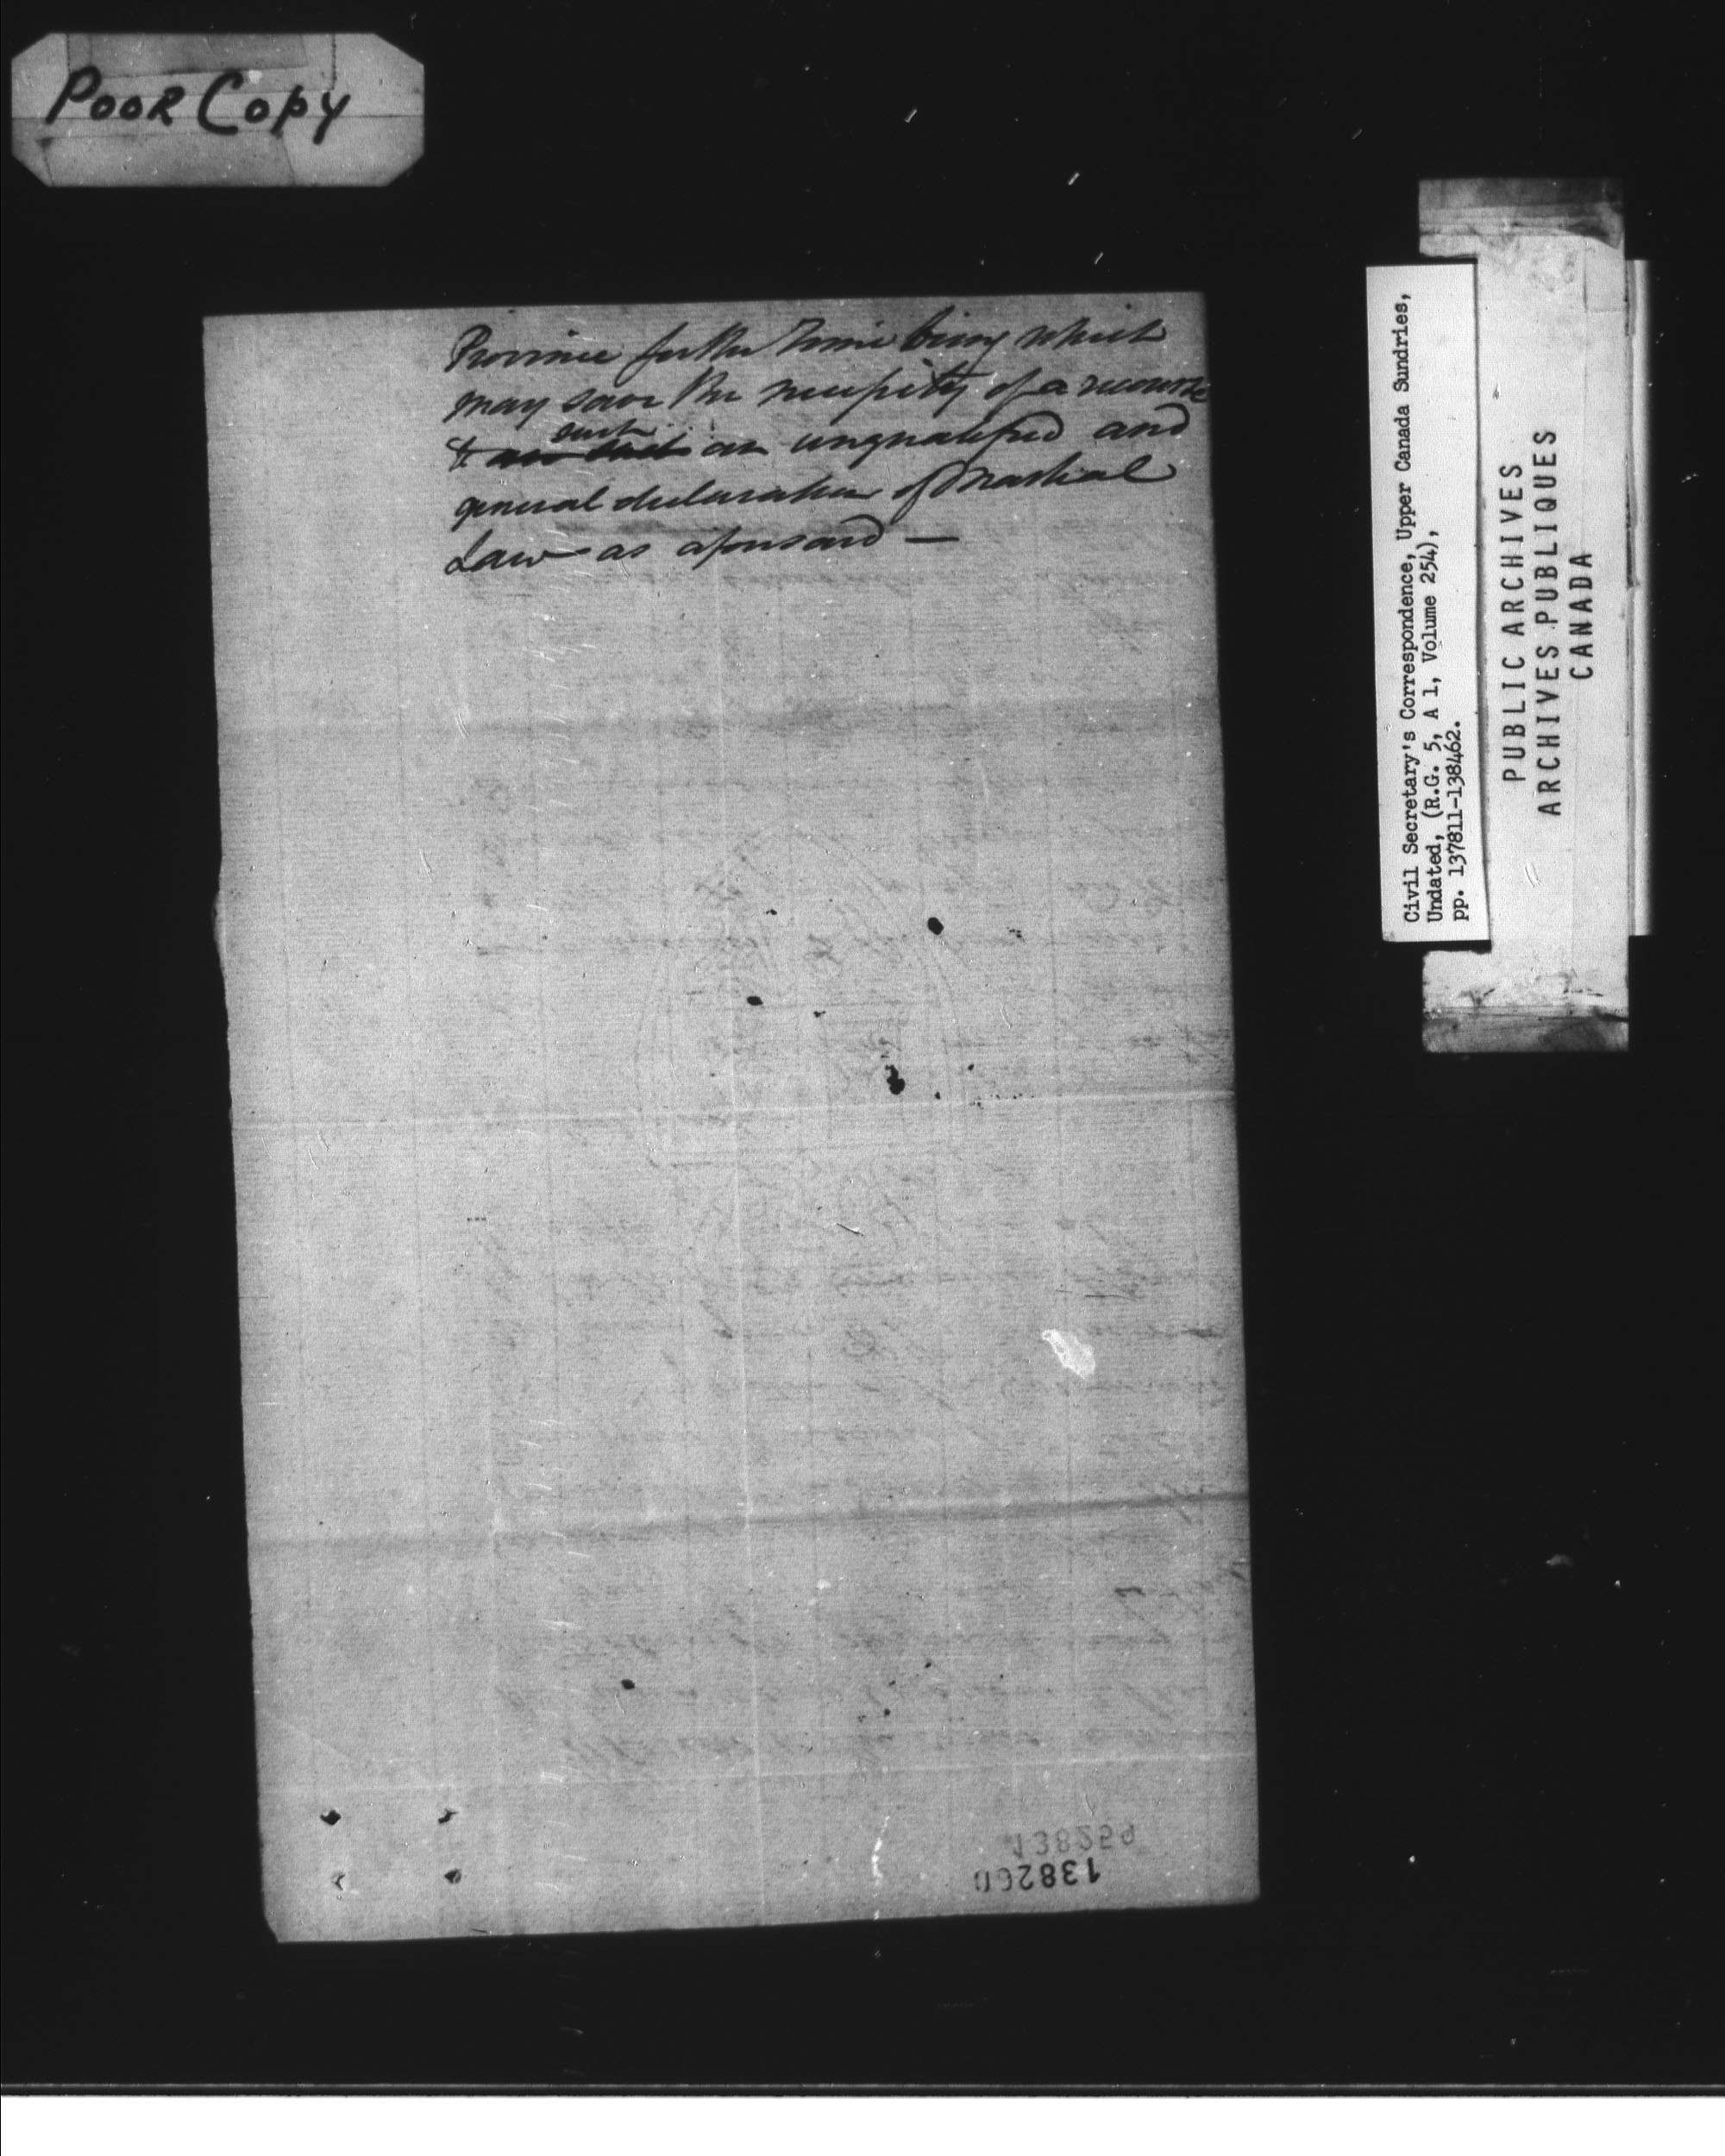 Poor Copy
Province for the Time being which
may save the necessity of a recourse
such
to an such an unqualified and
general declaration of Martial
Law as aforesaid —
138259
138260
Civil Secretary's Correspondence, Upper Canada Sundries,
Undated, (R.G. 5, A 1, Volume 254),
pp. 137811-138462.
PUBLIC ARCHIVES
ARCHIVES PUBLIQUES
CANADA